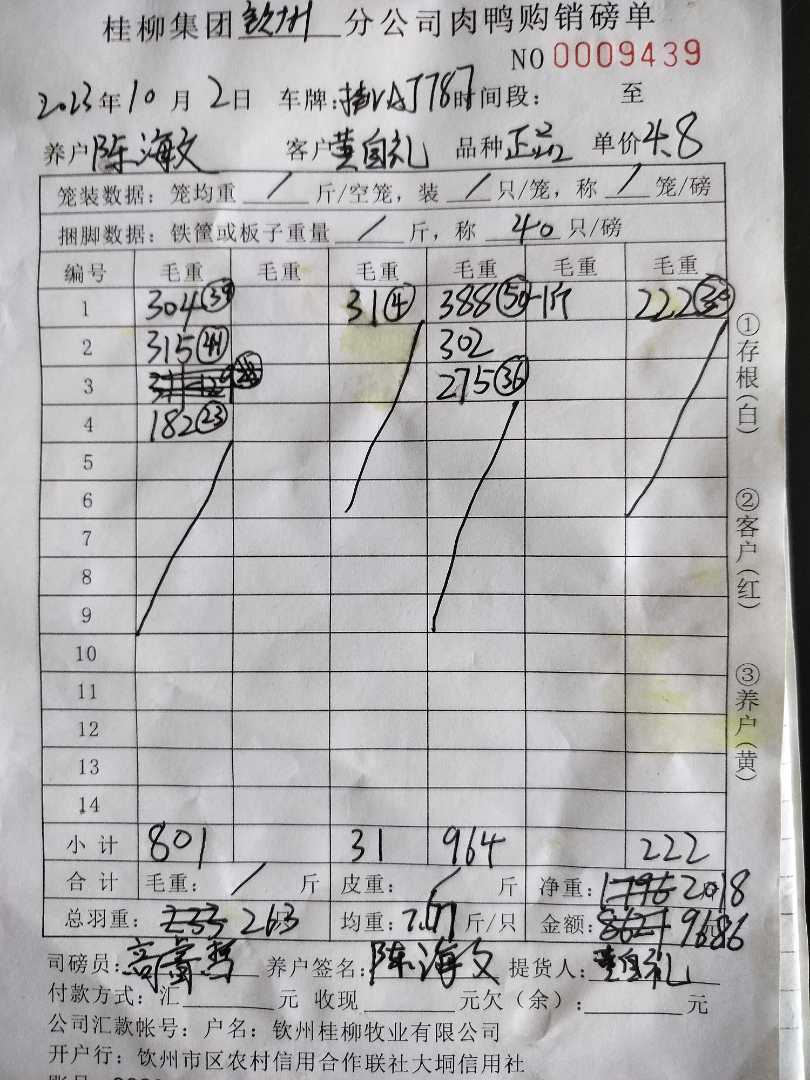 桂柳集团钦州分公司肉鸭购销磅单
NO 0009439
2023年10月2日 车牌: J787时间段: 至
养户陈海文 客户黄自礼 品种正品 单价4.8
笼装数据: 笼均重 / 斤/空笼, 装 / 只/笼, 称 / 笼/磅
捆脚数据: 铁筐或板子重量 / 斤, 称 40 只/磅
编号 毛重 毛重 毛重 毛重 毛重 毛重
1 304 31④ 388㊿ -1斤 222
2 315㊶ 302
3 275㊱
4 182㉓
5
6
7
8
9
10
11
12
13
14
小计 801 31 964 222
合计 毛重: / 斤 皮重: / 斤 净重: 1796 2018
总羽重: 233 263 均重: 7.67斤/只 金额: 8621 9686元
司磅员: 养户签名: 陈海文 提货人: 黄自礼
付款方式: 汇 元 收现 元欠(余): 元
公司汇款帐号: 户名: 钦州桂柳牧业有限公司
开户行: 钦州市区农村信用合作联社大垌信用社
①存根(白)
②客户(红)
③养户(黄)